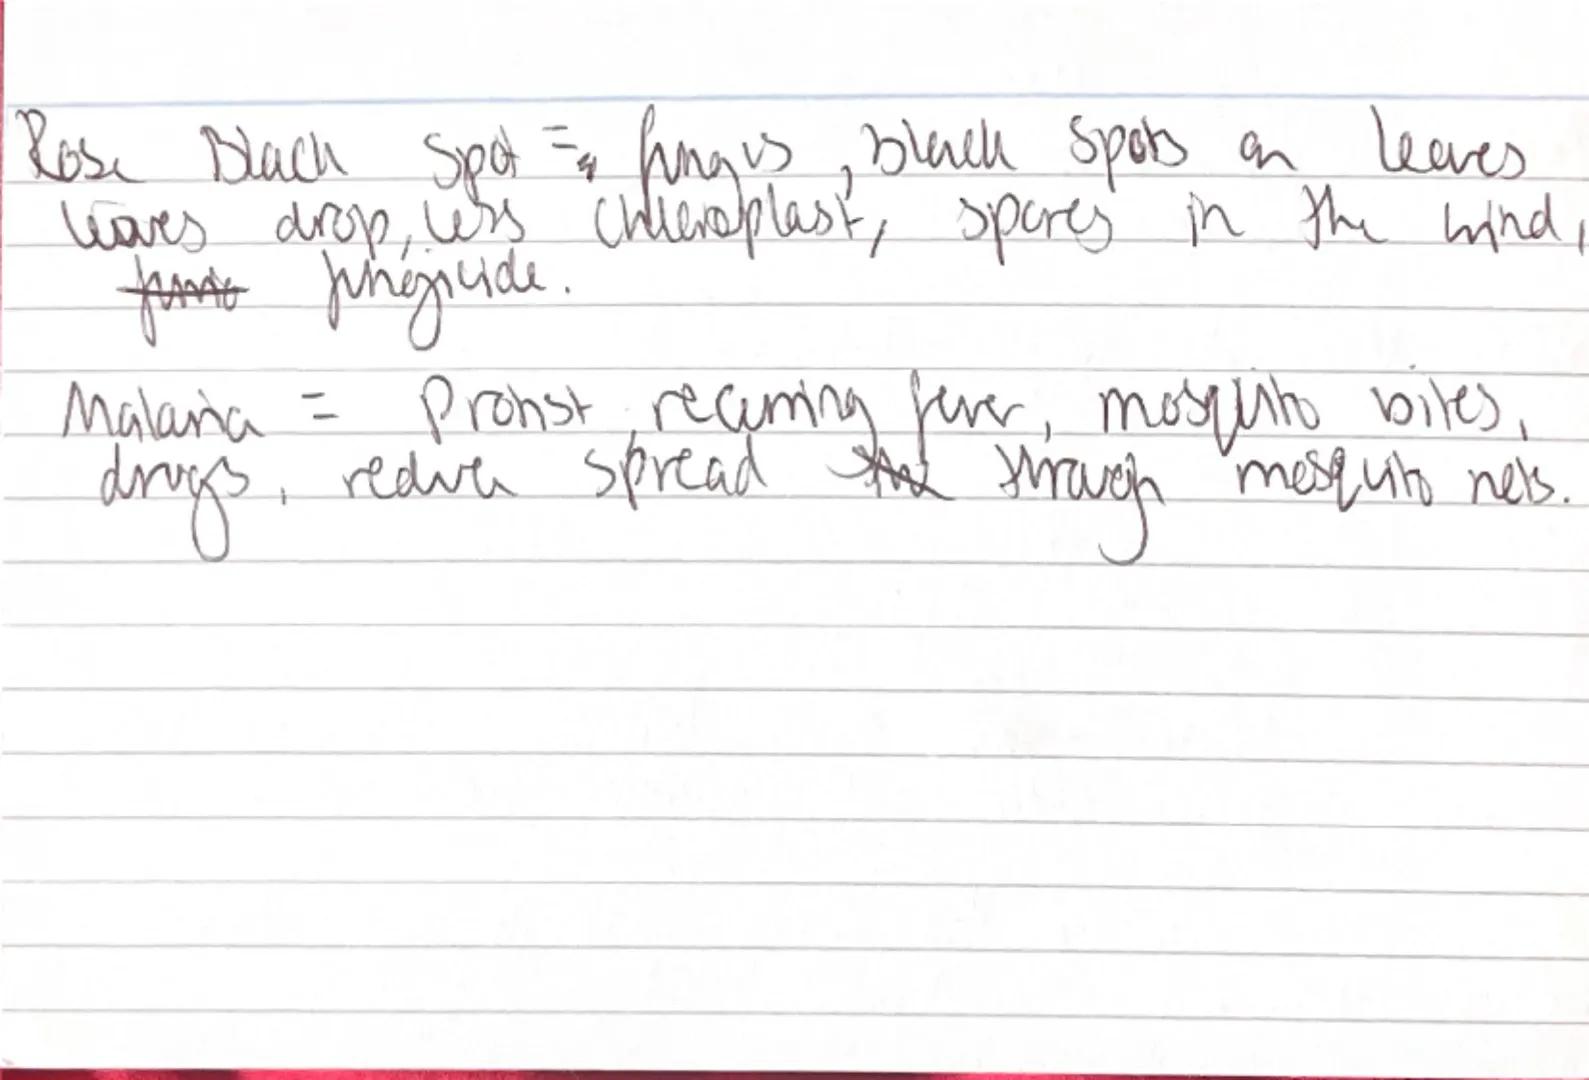 Rose Black Spot = fungus, black spots on leaves
leaves drop, less chloroplast, spores in the wind,
fungicide.
Malaria = Protist, recurring fever, mosquito bites,
drugs, reduce spread through mosquito nets.